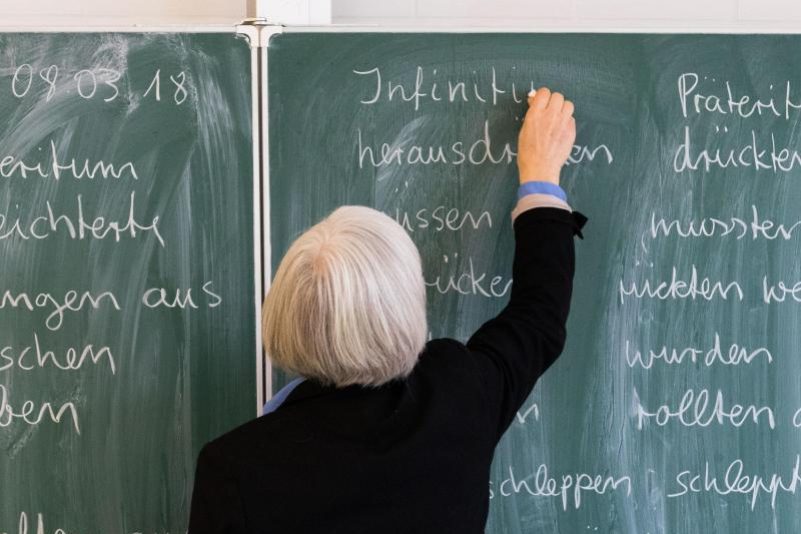 08.03.18
eritum
eichterte
ngen aus
schen
ben
Infiniti
herausdr
en
üssen
ücke
n
schleppen
Präterit
drückten
mussten
rückten we
wurden
rollten
schleppt